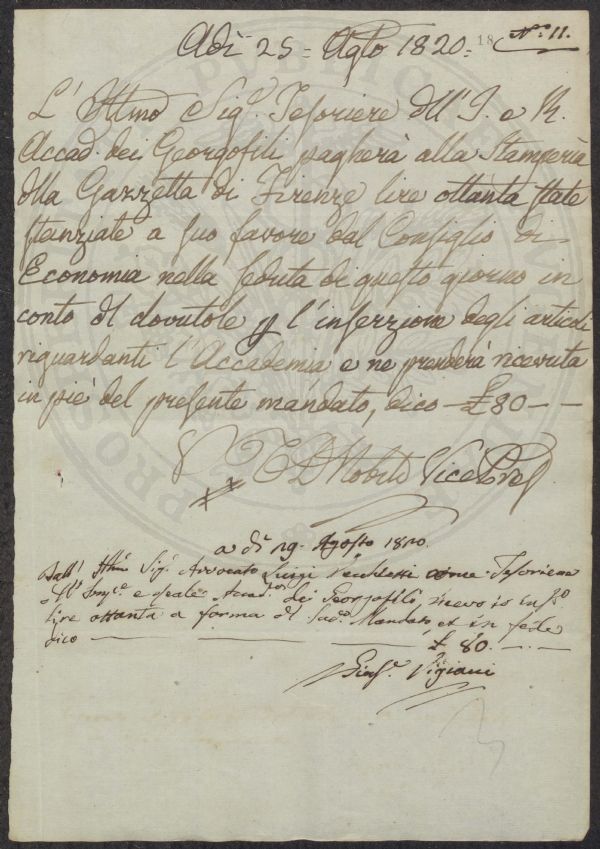 18
N.° 11.
Adì 25 = Agto 1820 =
L' Illmo Sig.r Tesoriere dll' I. e R.
Accad. dei Georgofili pagherà alla Stamperia
dlla Gazzetta di Firenze lire ottanta state
stanziate a suo favore dal Consiglio di
Economia nella seduta di questo giorno in
conto dl dovutole p l'inserzione degli articoli
riguardanti l'Accademia e ne prenderà ricevuta
in piè del presente mandato, dico £80 --
Nobili VicePres
a dì 29. Agosto 1820.
Dall' Illmo Sig.r Avvocato Luigi come Tesoriere
dll' e Reale Accad.a dei Georgofili, ricevo io
lire ottanta a forma dl Mandato, et in fede
dico £ 80.
Vigiani